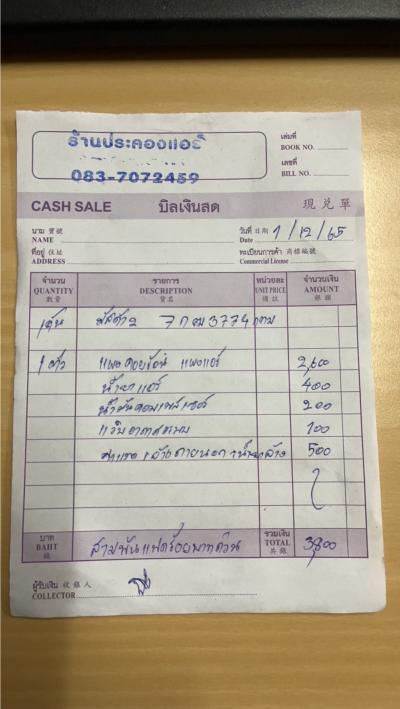 ร้านประคองแอร์
083-7072459
เล่มที่
BOOK NO.
เลขที่
BILL NO.
CASH SALE บิลเงินสด 現兌單
นาม 寶號
NAME
วันที่ 日期 1/12/65
Date
ที่อยู่ 住址
ADDRESS
ทะเบียนการค้า 商標編號
Commercial License
จำนวน รายการ หน่วยละ จำนวนเงิน
QUANTITY DESCRIPTION UNIT PRICE AMOUNT
數量 貨名 備註 銀額
1คัน มัสด้า2 7กอม3774กทม
1ตัว แผงคอยร้อน แผงแอร์ 2,600
น้ำยาแอร์ 400
น้ำมันคอมเพรสเซอร์ 200
แว๊บอากาศระบบ 100
ค่าแรง ล้างภายนอก น้ำยาล้าง 500
บาท รวมเงิน
BAHT สามพันแปดร้อยบาทถ้วน TOTAL 3,800
銖 共銀
ผู้รับเงิน 收銀人
COLLECTOR